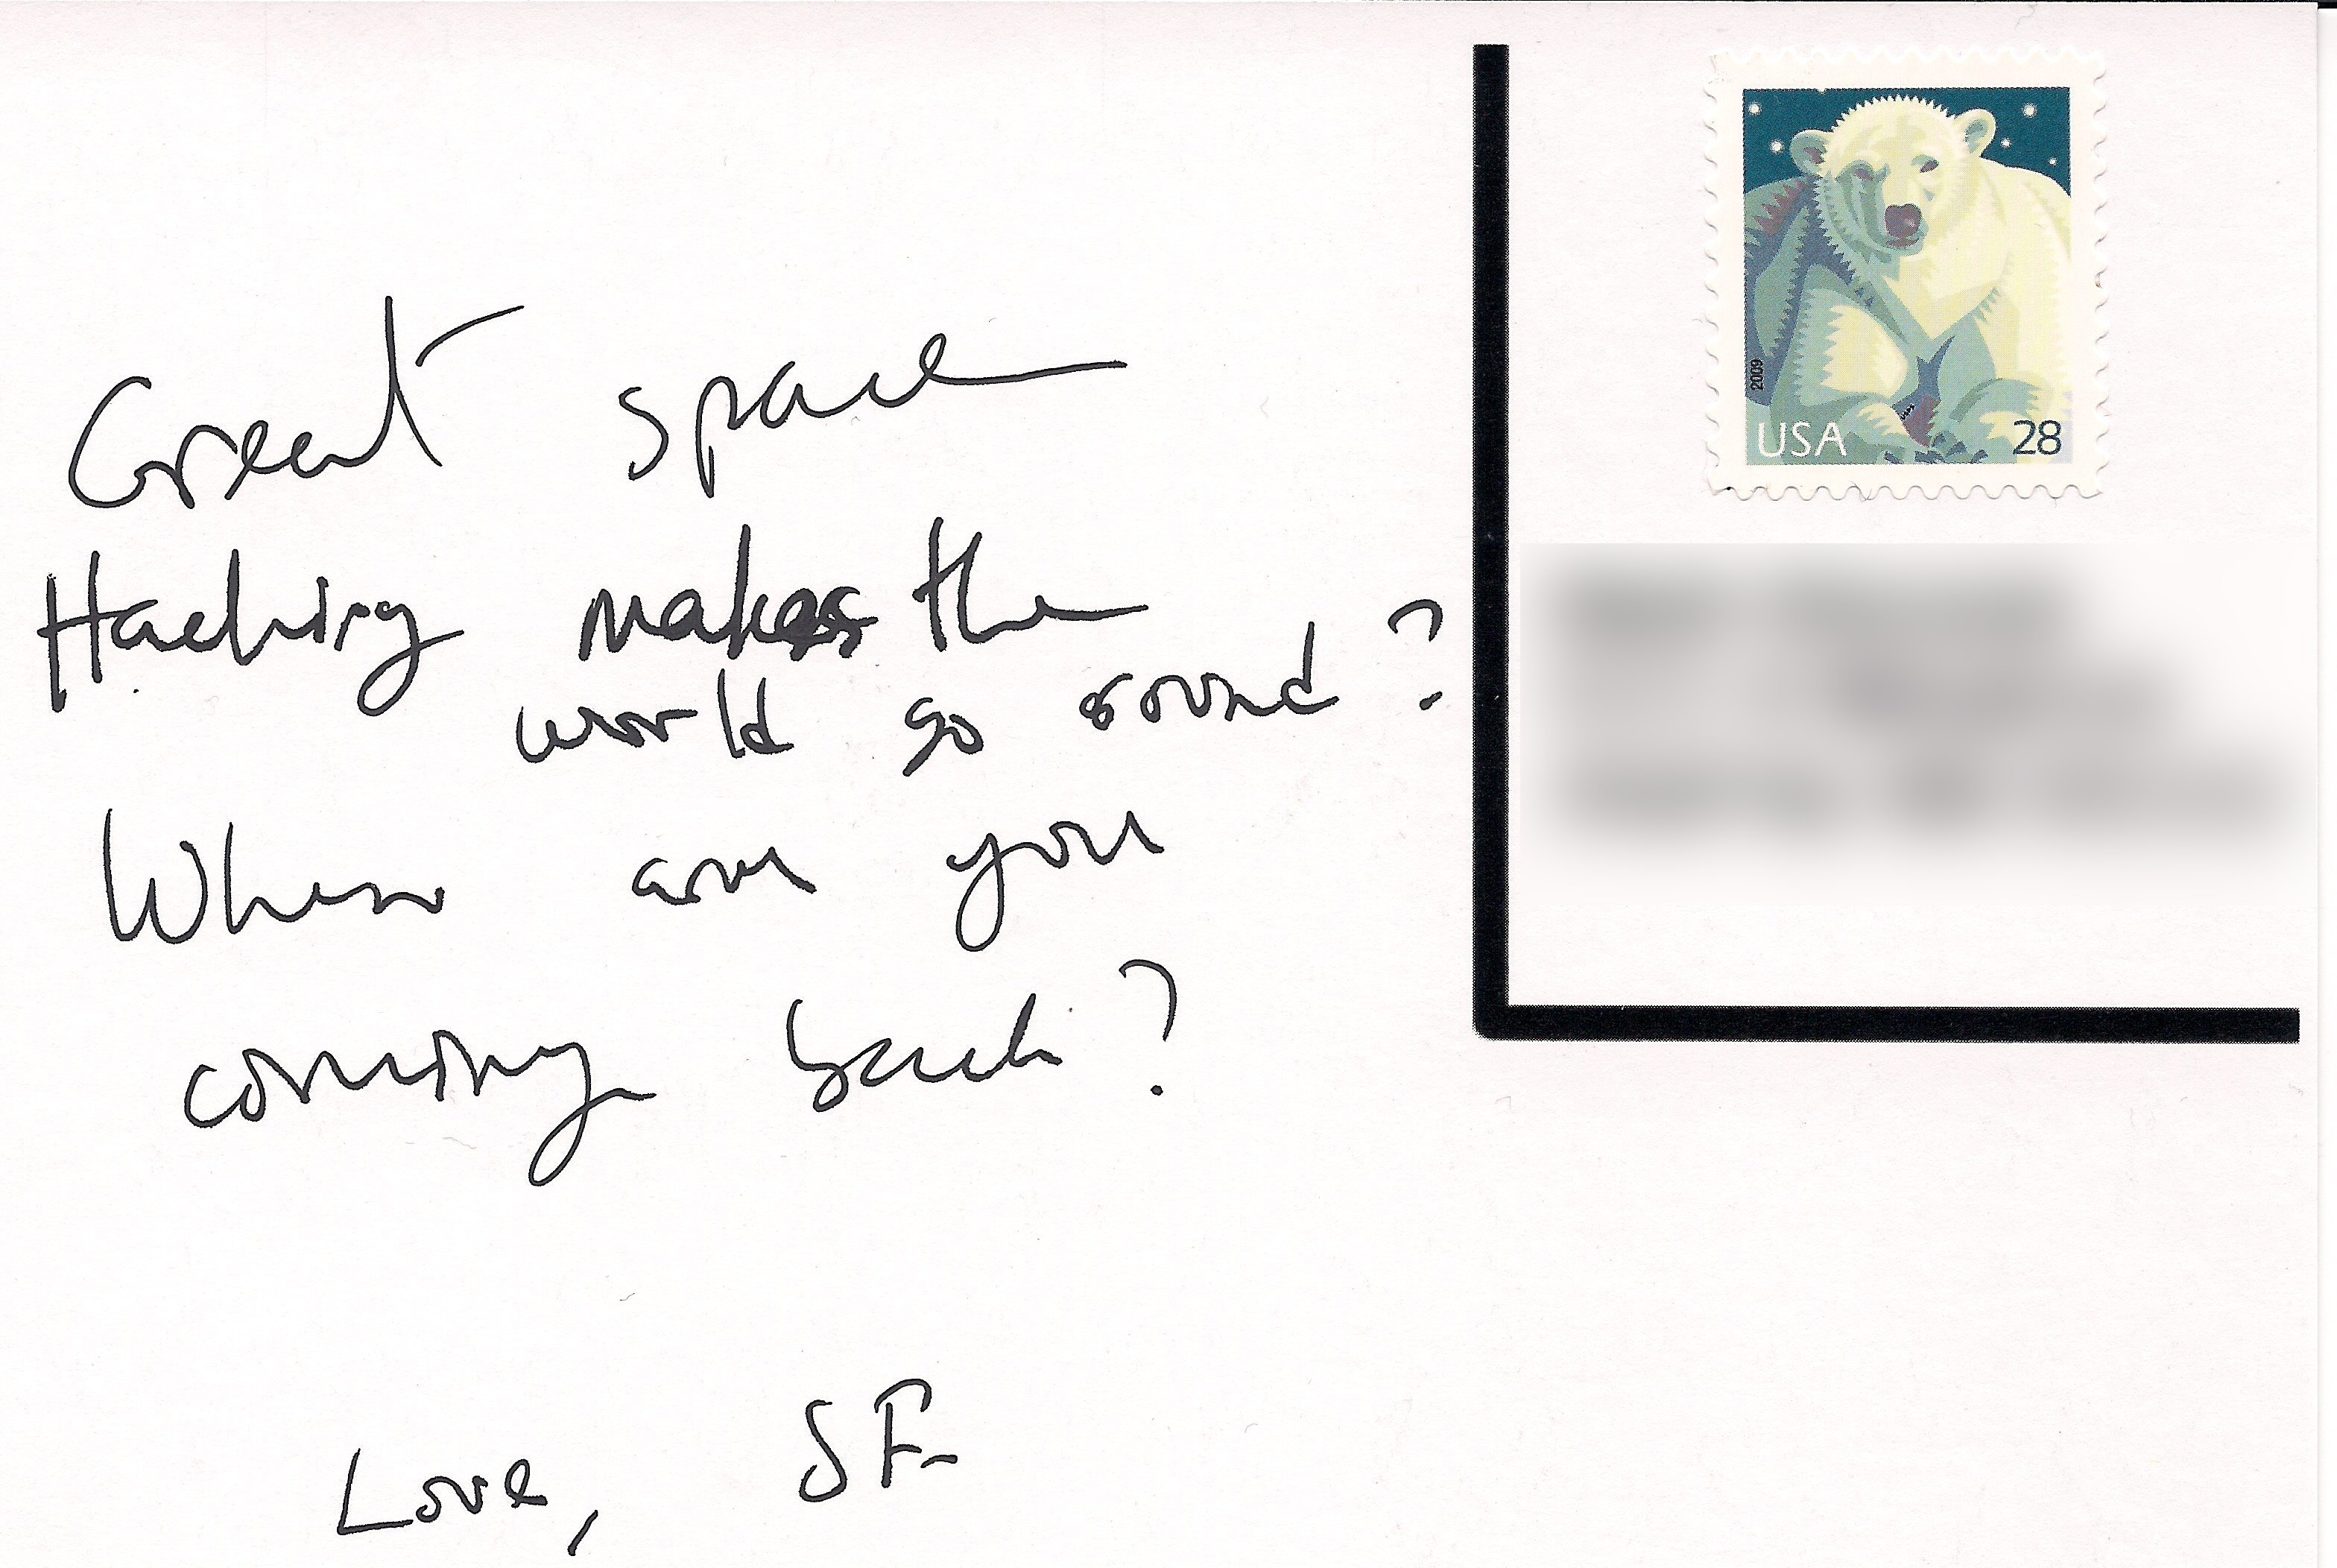 Great space
Hacking makes the
world go round?
When are you
coming back?
Love, SF
2009
USA 28